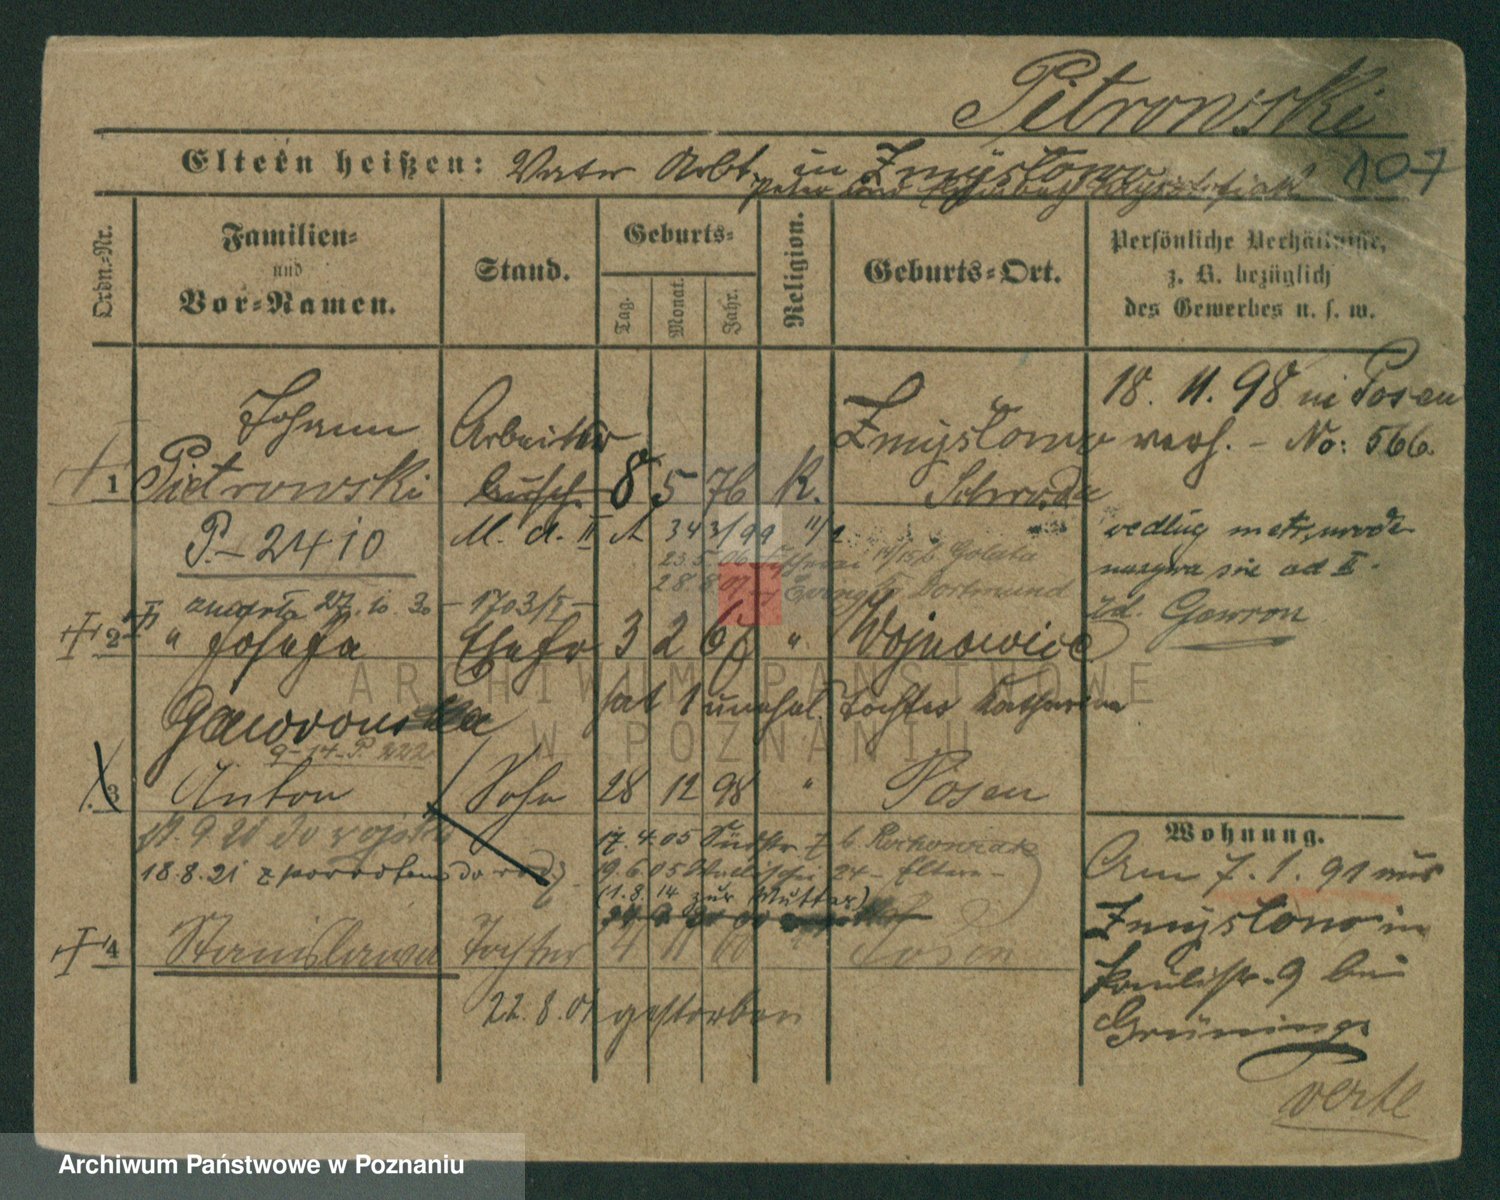 Pitrowski
107
Eltern heißen: Vater Arbt. in Zmyslowo
Peter und
Ordn.-Nr.
Familien-
und
Vor-Namen.
Stand.
Geburts-
Tag.
Monat.
Jahr.
Religion.
Geburts-Ort.
Persönliche Verhältnisse,
z. B. bezüglich
des Gewerbes u. s. w.
1
Johann
Pietrowski
Arbeiter
bursch.
8 5 76 K.
Zmyslowo
Schroda
18. 11. 98 in Posen
verh. - No: 566
P-2410
M. d. II A 343/99 11/1
23.5.06
Golata
28.8.07 Dortmund
według metr.
nazywa się ad II.
zd. Gawron
zmarł 27.10.30 - 1703/I -
2
" Josefa
Ehefr
3 2 67 "
Wojnowice
Gaworonska
hat 1 unehel. Tochter Katharina
9-14-P. 222
3
Anton
Sohn
28 12 98 "
Posen
21.9.20 do wojska
18.8.21 z powrotem do
17.4.05 Südstr 7 b
19.6.05 24 - Eltern -
(1.8.14 zur Mutter)
4
Stanislawa
Tochter
4 11 00 "
Posen
22.8.01 gestorben
Wohnung.
Am 7.1.91 aus
Zmyslowo in
Paulistr. 9 bei
Grüning
verte
ARCHIWUM PAŃSTWOWE
W POZNANIU
Archiwum Państwowe w Poznaniu